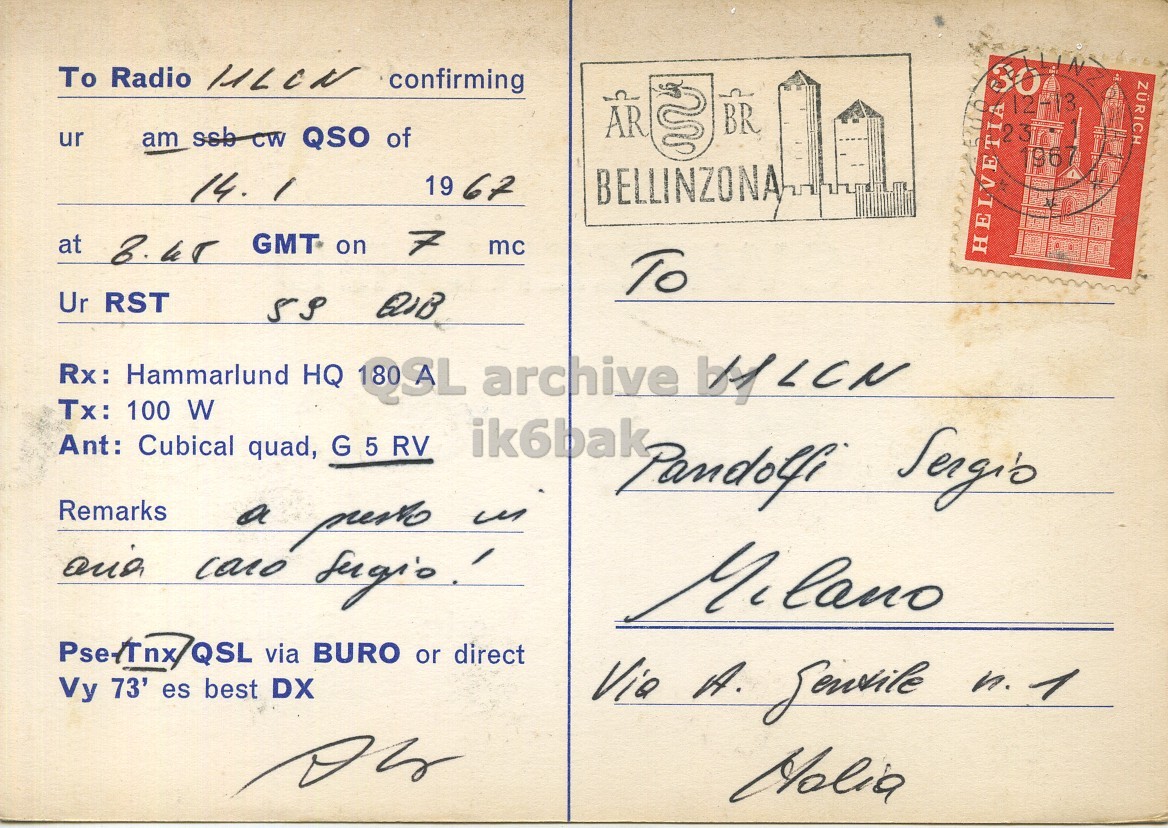 To Radio I1LCN confirming
ur am ssb cw QSO of
14. 1 1967
at 8.45 GMT on 7 mc
Ur RST 59 QSB
Rx: Hammarlund HQ 180 A
Tx: 100 W
Ant: Cubical quad, G 5 RV
Remarks a presto in
aria caro Sergio!
Pse-Tnx QSL via BURO or direct
Vy 73' es best DX
AR BR
BELLINZONA
BELLINZONA
12-13
23. 1
1967
30
HELVETIA
ZÜRICH
To
I1LCN
Pandolfi Sergio
Milano
Via A. Gentile n. 1
Italia
QSL archive by
ik6bak